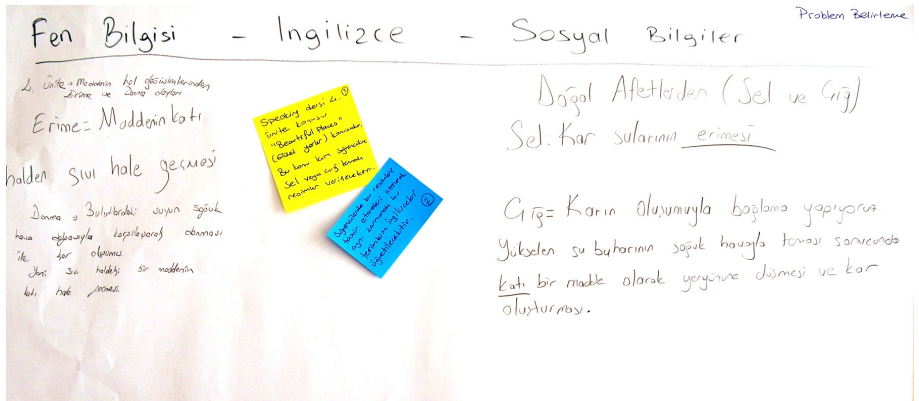 Problem Belirleme
Fen Bilgisi - İngilizce - Sosyal Bilgiler
4. Ünite → Maddenin hal değişimlerinden
Erime ve Donma olayları
Erime = Maddenin katı
halden sıvı hale geçmesi
Donma → Bulutlardaki suyun soğuk
hava dalgasıyla karşılaşarak donması
ile kar oluşumu
Yani sıvı haldeki bir maddenin
katı hale geçmesi.
①
Speaking dersi 4.
ünite konusu
"Beautiful Places"
(Güzel yerler) konusudur.
Bu konu için öğrencilere
sel veya çığ temalı
resimler verilecektir.
Öğrencilerden bu resimleri
tasvir etmeleri istenerek
aynı zamanda bu
terimlerin ingilizceleri
öğretilecektir.
②
Doğal Afetlerden (Sel ve Çığ)
Sel: Kar sularının erimesi
Çığ = Karın oluşumuyla bağlama yapıyoruz
Yükselen su buharının soğuk havayla teması sonucunda
katı bir madde olarak yeryüzüne düşmesi ve kar
oluşturması.